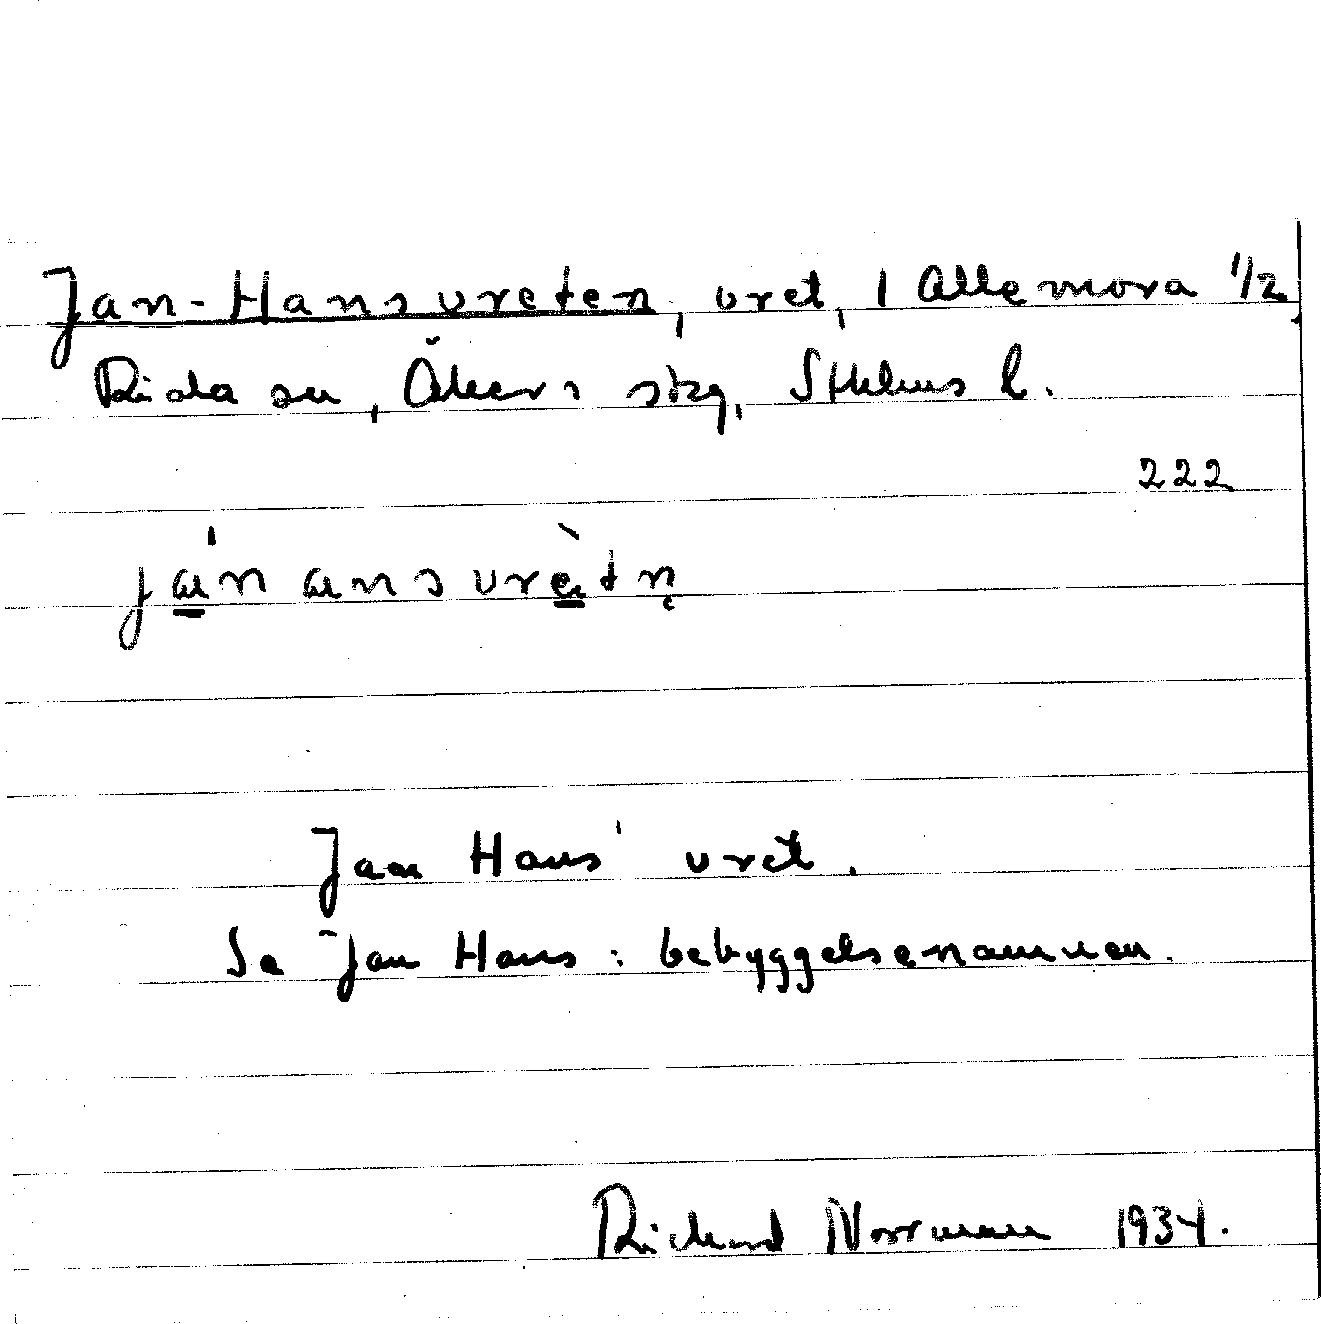 Jan-Hansvreten, vret, 1 Allemora 1/2,
Rida sn, Åkers skg, Sthlms l.
222
ján ansvrètn̥
Jan Hans' vret.
Se Jan Hans: bebyggelsenamnen.
Richard Norrman 1934.